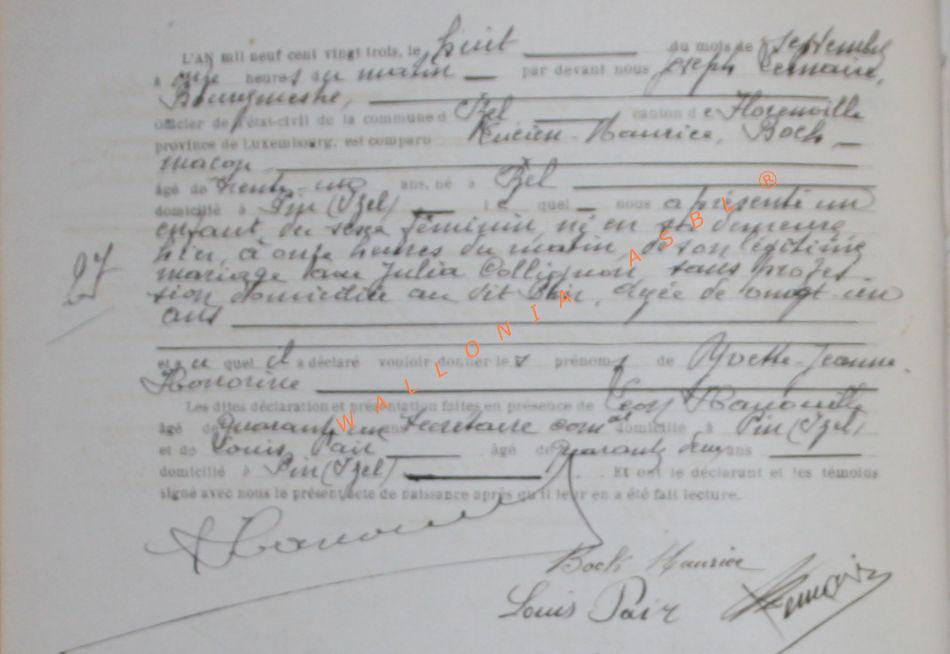 L'AN mil neuf cent vingt trois, le huit du mois de Septembre
à onze heures du matin par devant nous Joseph Lemaire,
Bourgmestre,
Officier de l'état-civil de la commune d Izel canton d e Florenville
province de Luxembourg, est comparu Lucien-Maurice, Bock
maçon
âgé de trente-un ans, né à Izel
domicilié à Pin (Izel) l e quel nous a présenté un
enfant du sexe féminin né en sa demeure
hier, à onze heures du matin, de son légitime
mariage avec Julia Collignon, sans profes-
27
sion domiciliée au dit Pin, âgée de vingt-un
ans
et au quel il a déclaré vouloir donner les prénoms de Yvette-Jeanne
Honorine
Les dites déclaration et présentation faites en présence de Léon
âgé de Quarante ans Secrétaire comal domicilié à Pin (Izel)
et de Louis Pair âgé de quarante deux ans
domicilié à Pin (Izel) . Et ont le déclarant et les témoins
signé avec nous le présent acte de naissance après qu'il leur en a été fait lecture.
Bock Maurice
Louis Pair
Lemaire
WALLONIA ASBL ®